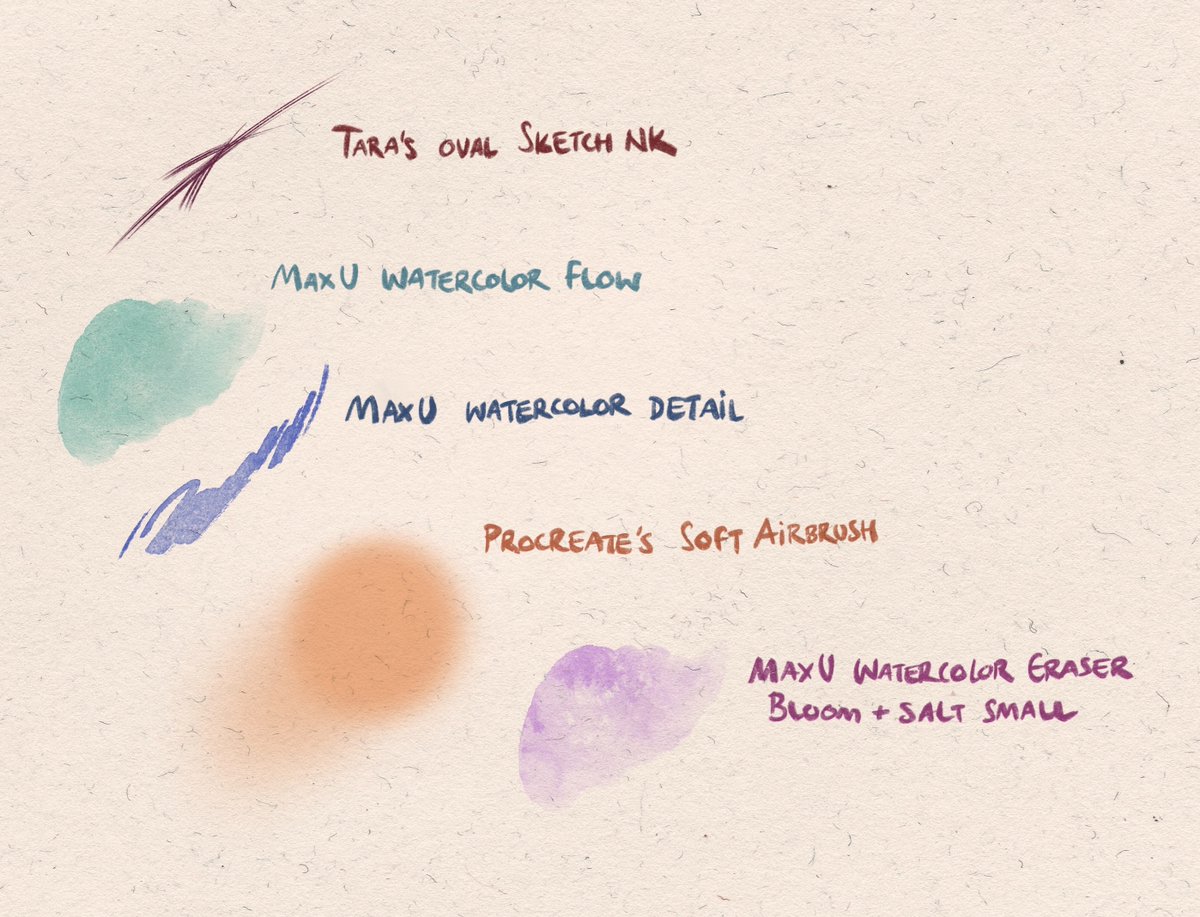 TARA'S OVAL SKETCH NK
MAXU WATERCOLOR FLOW
MAXU WATERCOLOR DETAiL
PROCREATE'S SOFT AiRBRUSH
MAXU WATERCOLOR ERASER
BLOOM + SALT SMALL